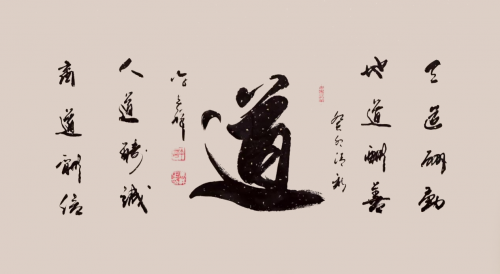 天道酬勤
地道酬善
癸卯
道
人道酬誠
商道酬信